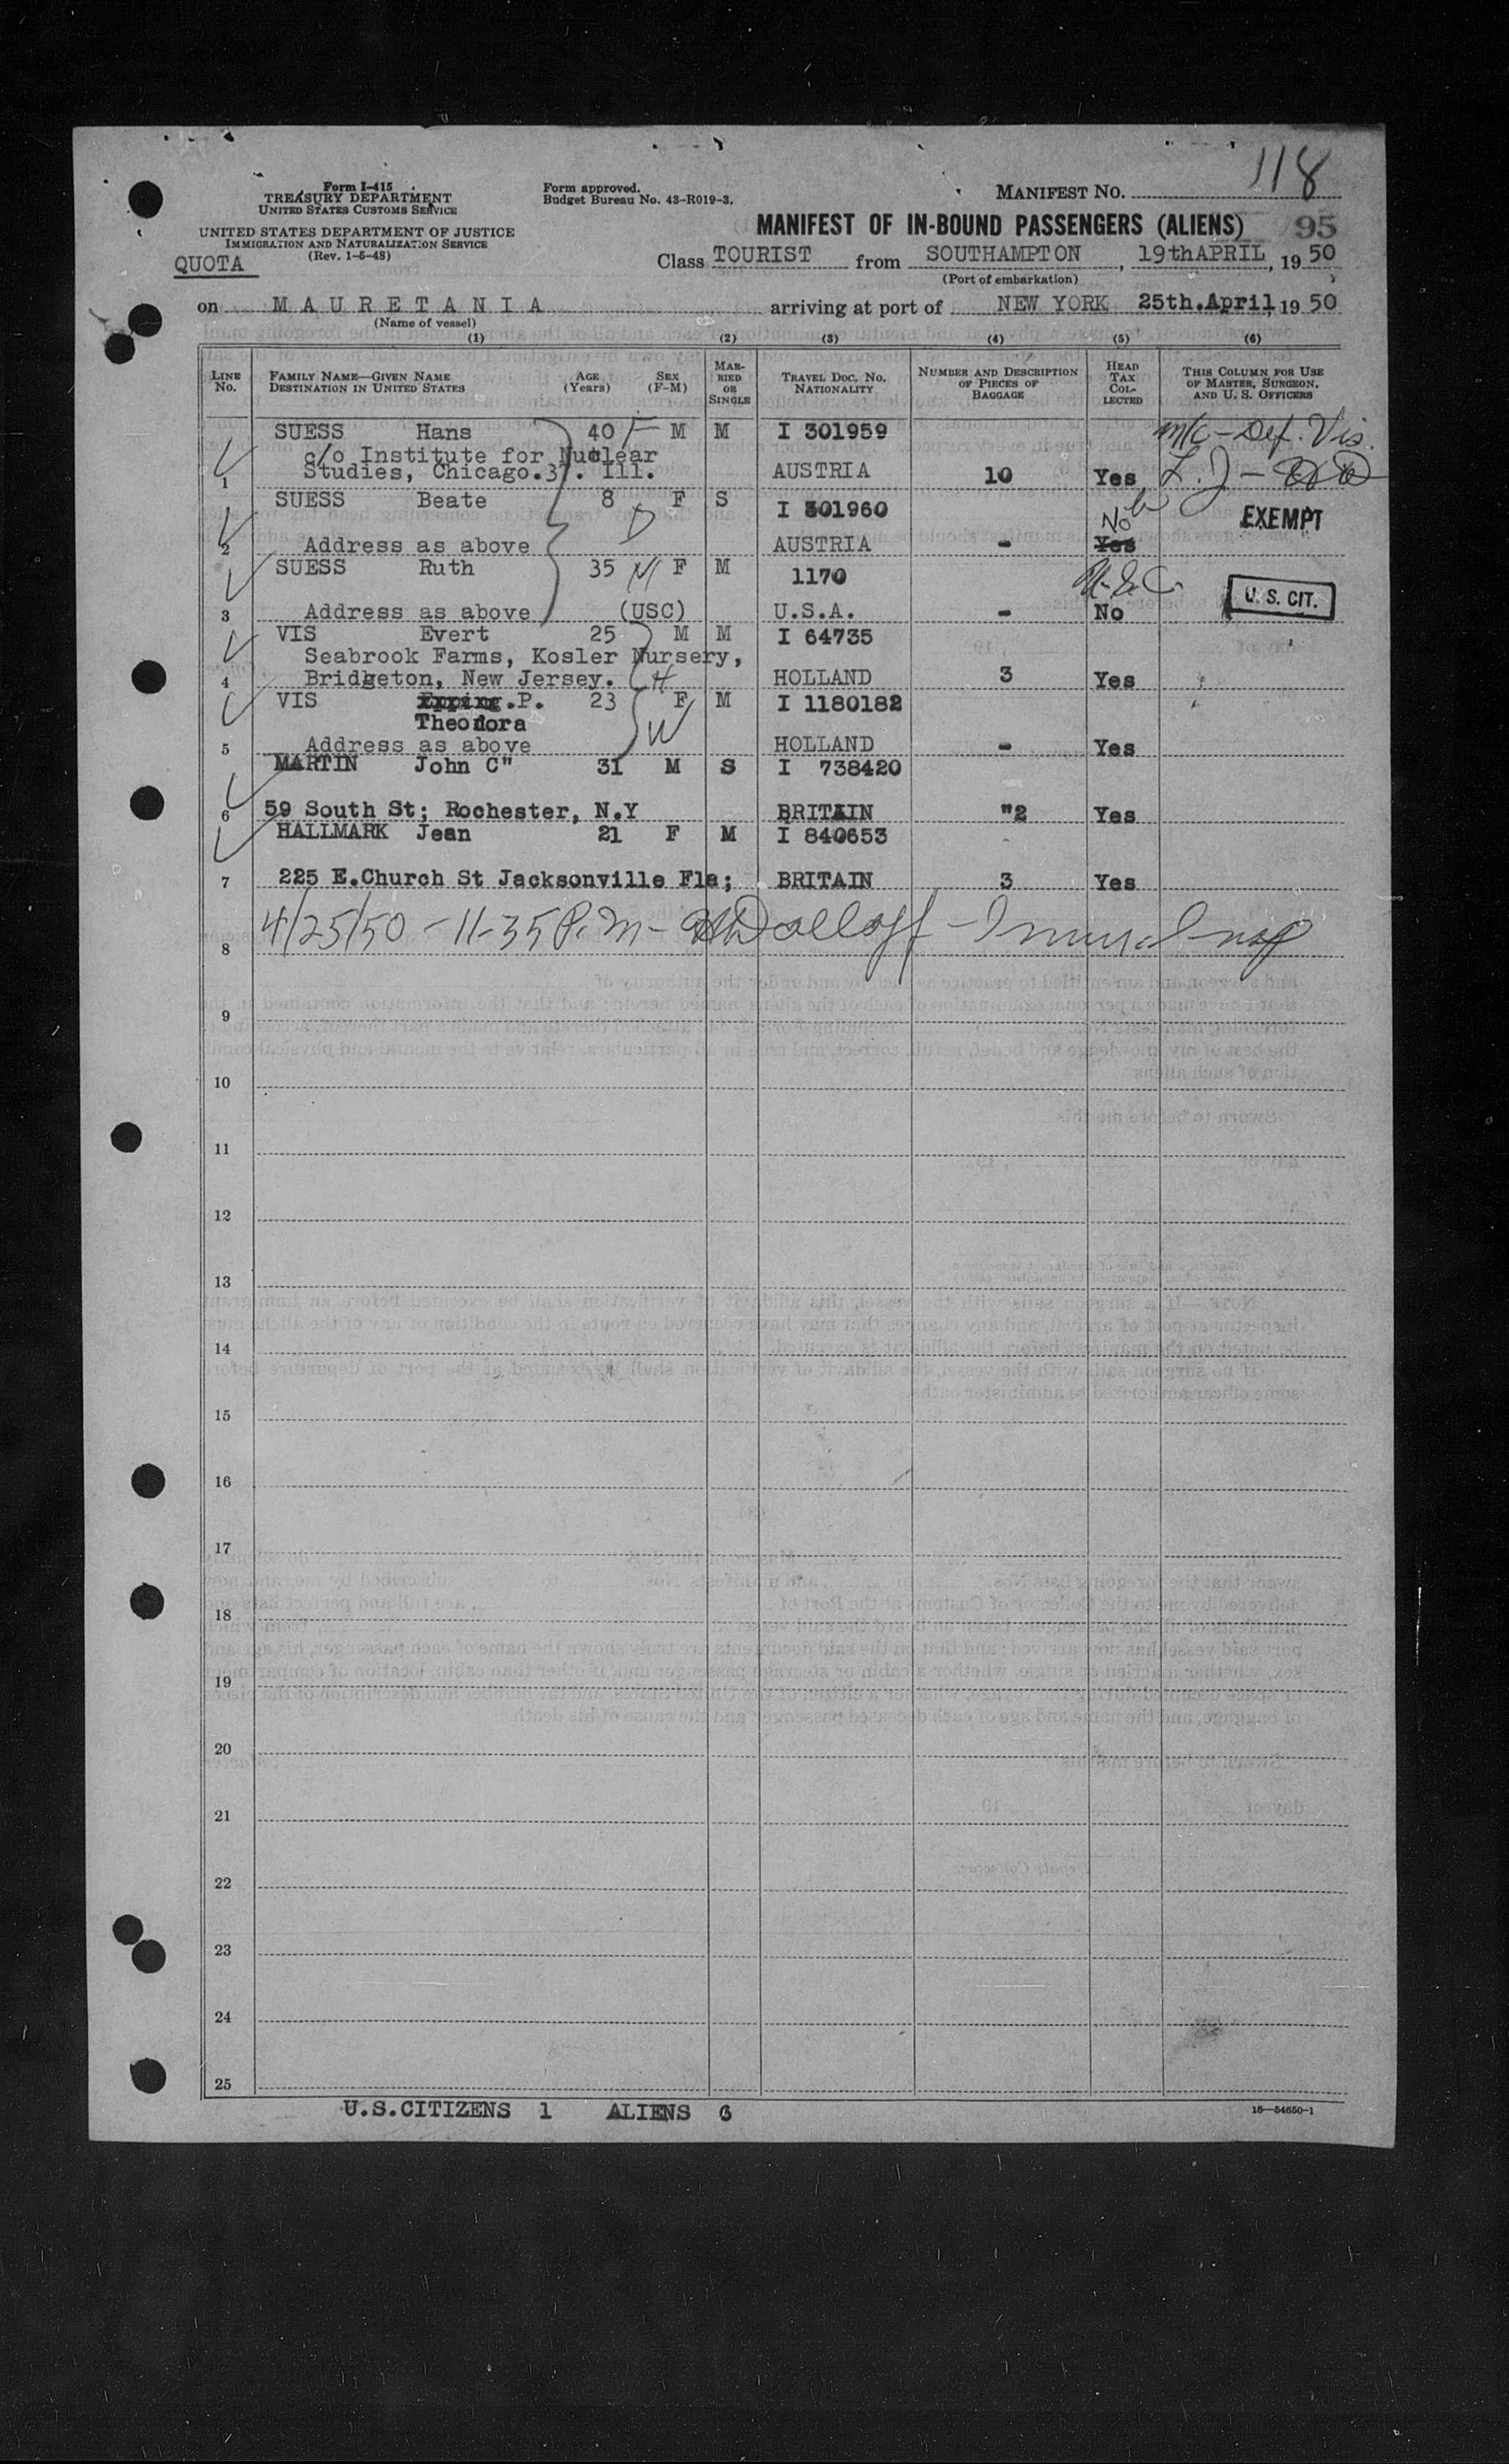 118
Form I-415
TREASURY DEPARTMENT
UNITED STATES CUSTOMS SERVICE
UNITED STATES DEPARTMENT OF JUSTICE
IMMIGRATION AND NATURALIZATION SERVICE
(Rev. 1-6-48)
QUOTA
Form approved.
Budget Bureau No. 43-R019-3.
MANIFEST NO.
MANIFEST OF IN-BOUND PASSENGERS (ALIENS) 95
Class TOURIST from SOUTHAMPTON, 19thAPRIL, 1950
(Port of embarkation)
on MAURETANIA arriving at port of NEW YORK 25th.April 1950
(Name of vessel)
(1) (2) (3) (4) (5) (6)
LINE No. FAMILY NAME—GIVEN NAME DESTINATION IN UNITED STATES AGE (Years) SEX (F-M) MARRIED OR SINGLE TRAVEL DOC. NO. NATIONALITY NUMBER AND DESCRIPTION OF PIECES OF BAGGAGE HEAD TAX COLLECTED THIS COLUMN FOR USE OF MASTER, SURGEON, AND U. S. OFFICERS
SUESS Hans 40 F M M I 301959 Def. Vis.
c/o Institute for Nuclear
1 Studies, Chicago.37. Ill. AUSTRIA 10 Yes L. J -
SUESS Beate 8 F S I 301960
D No EXEMPT
2 Address as above AUSTRIA - Yes
SUESS Ruth 35 F M 1170 U.S.C.
3 Address as above (USC) U.S.A. - No U. S. CIT.
VIS Evert 25 M M I 64735
Seabrook Farms, Kosler Nursery,
4 Bridgeton, New Jersey. H HOLLAND 3 Yes
VIS Epping.P. 23 F M I 1180182
Theodora W
5 Address as above HOLLAND - Yes
MARTIN John C" 31 M S I 738420
6 59 South St; Rochester, N.Y BRITAIN "2 Yes
HALLMARK Jean 21 F M I 840653
7 225 E.Church St Jacksonville Fla; BRITAIN 3 Yes
4/25/50 - 11-35 P.m -
8
9
10
11
12
13
14
15
16
17
18
19
20
21
22
23
24
25
U.S.CITIZENS 1 ALIENS 6
16—54650-1